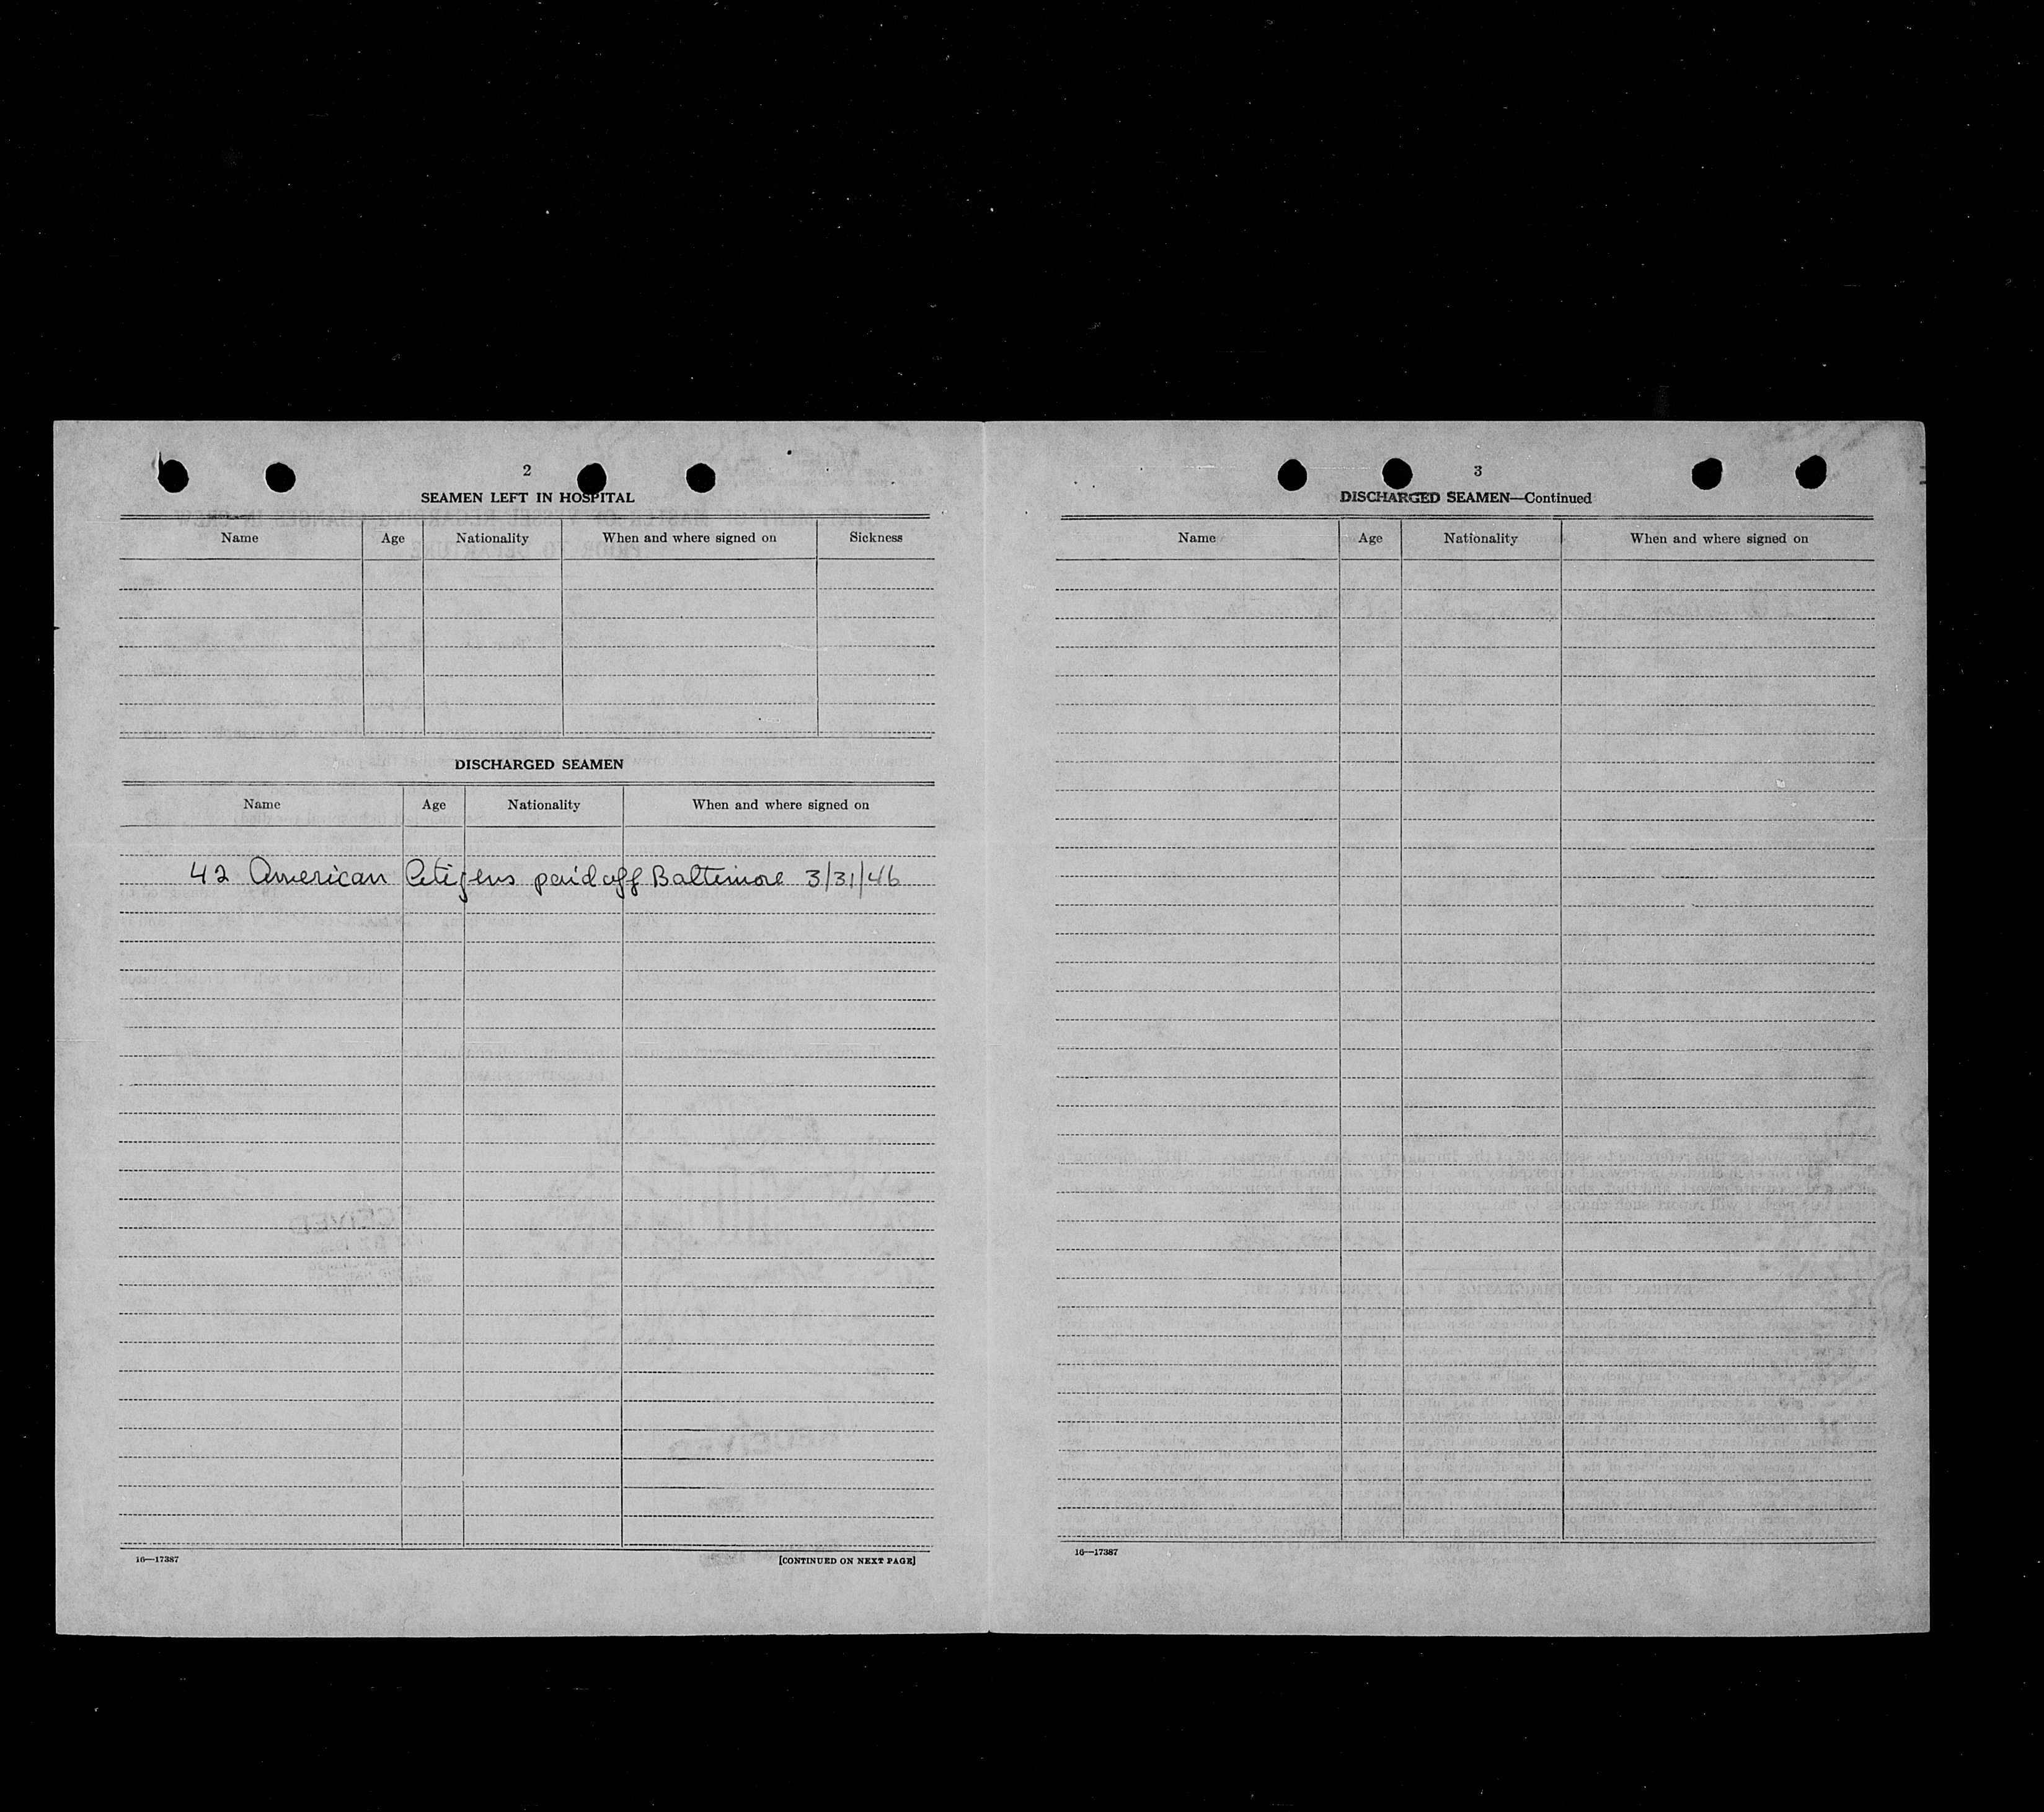 2
SEAMEN LEFT IN HOSPITAL
Name Age Nationality When and where signed on Sickness
DISCHARGED SEAMEN
Name Age Nationality When and where signed on
42 American Citizens paid off Baltimore 3/31/46
16—17387 [CONTINUED ON NEXT PAGE]
3
DISCHARGED SEAMEN—Continued
Name Age Nationality When and where signed on
16—17387